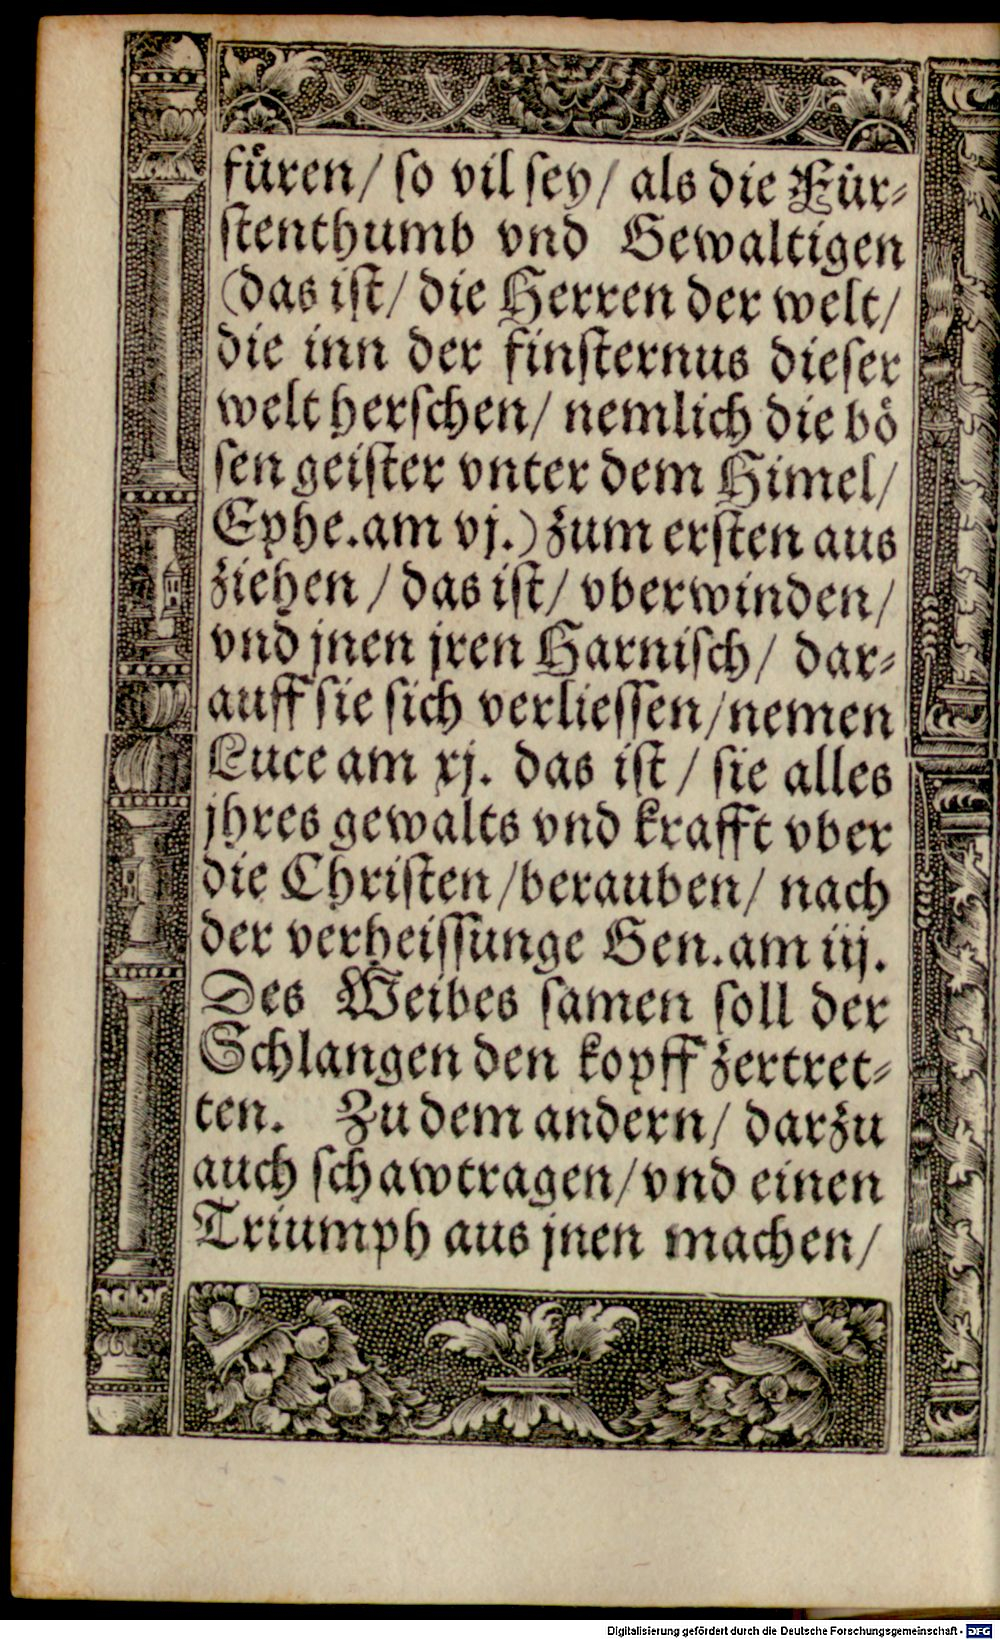 fuͤren/ ſo vil ſey/ als die Fuͤr⸗
ſtenthumb vnd Gewaltigen
(das iſt/ die Herren der welt/
die inn der finſternus dieſer
welt herſchen/ nemlich die boͤ
ſen geiſter vnter dem Himel/
Ephe.am vj.) zum erſten aus
ziehen/ das iſt/ vberwinden/
vnd jnen jren Harniſch/ dar⸗
auff ſie ſich verlieſſen/nemen
Luce am xj. das iſt/ ſie alles
jhres gewalts vnd krafft vber
die Chriſten/berauben/ nach
der verheiſſunge Gen.am iij.
Des Weibes ſamen ſoll der
Schlangen den kopff zertret⸗
ten. Zu dem andern/ darzu
auch ſchawtragen/vnd einen
Triumph aus jnen machen/
Digitalisierung gefördert durch die Deutsche Forschungsgemeinschaft - DFG